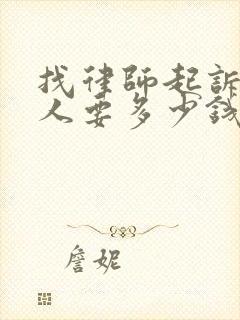 找律師起訴
人要多少錢
詹妮